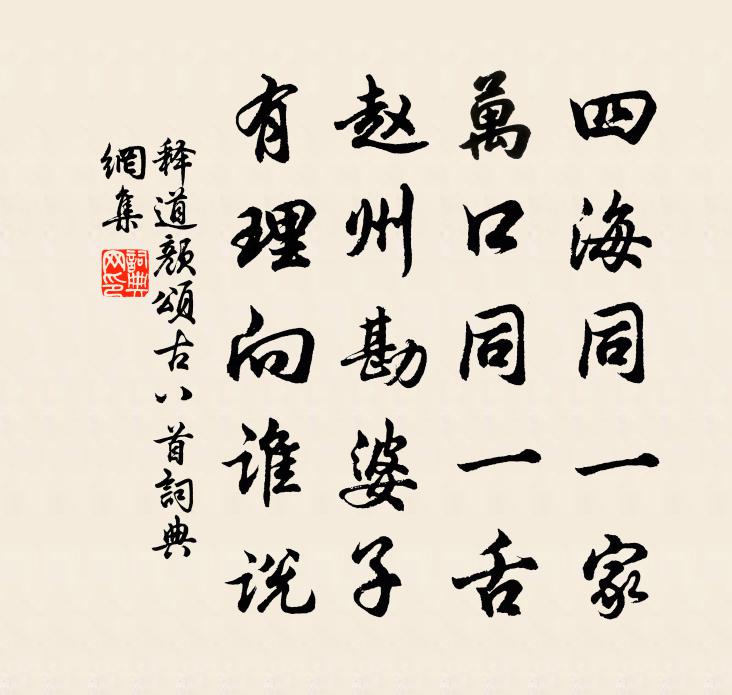 四海同一家
萬口同一舌
赵州勘婆子
有理向谁说
释道颜頌古八首詞典
網集
詞典
网印